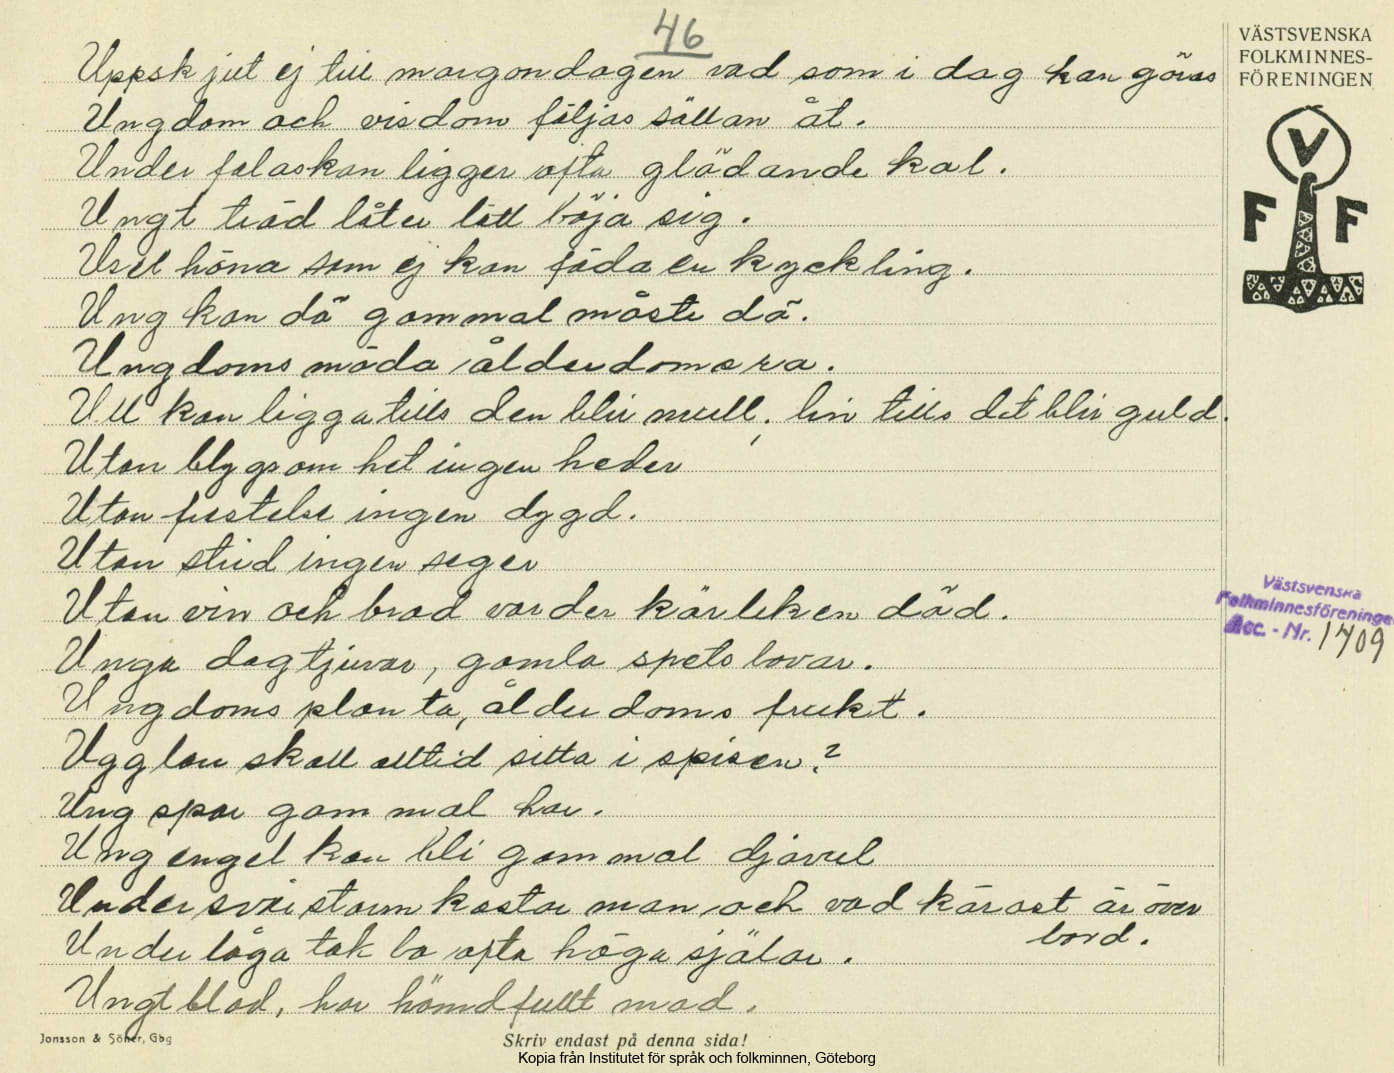 46
VÄSTSVENSKA
FOLKMINNES-
FÖRENINGEN
V
F F
Uppskjut ej till morgondagen vad som i dag kan göras
Ungdom och visdom följas sällan åt.
Under falaskan ligger ofta glödande kol.
Ungt träd låter lätt böja sig.
Usel höna som ej kan föda en kyckling.
Ung kan dö gammal måste dö.
Ungdoms möda ålderdoms ro.
Ull kan ligga tills den blir mull, lin tills det blir guld.
Utan blygsamhet ingen heder
Utan frestelse ingen dygd.
Utan strid ingen seger
Utan vin och brod varder kärleken död.
Västsvenska
Folkminnesföreninge
Acc. - Nr. 1709
Unga dagtjuvar, gamla spetsbovar.
Ungdoms planta, ålderdoms frukt.
Ugglan skall alltid sitta i spisen?
Ung spar gammal har.
Ung engel kan bli gammal djavul
Under svår storm kastar man och vad kärast är över
bord.
Under låga tak bo ofta höga själar.
Ungt blod, har hömdfullt mod.
Jonsson & Söner, Gbg
Skriv endast på denna sida!
Kopia från Institutet för språk och folkminnen, Göteborg